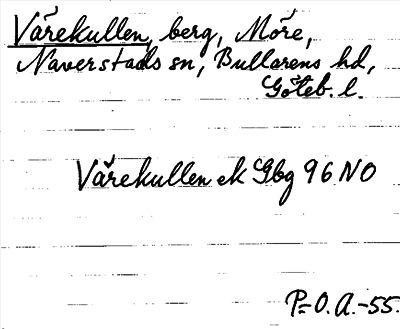 Vårekullen, berg, Möre,
Naverstads sn, Bullarens hd,
Göteb. l.
Vårekullen ek Gbg 96 NO
P-O.A.-55.